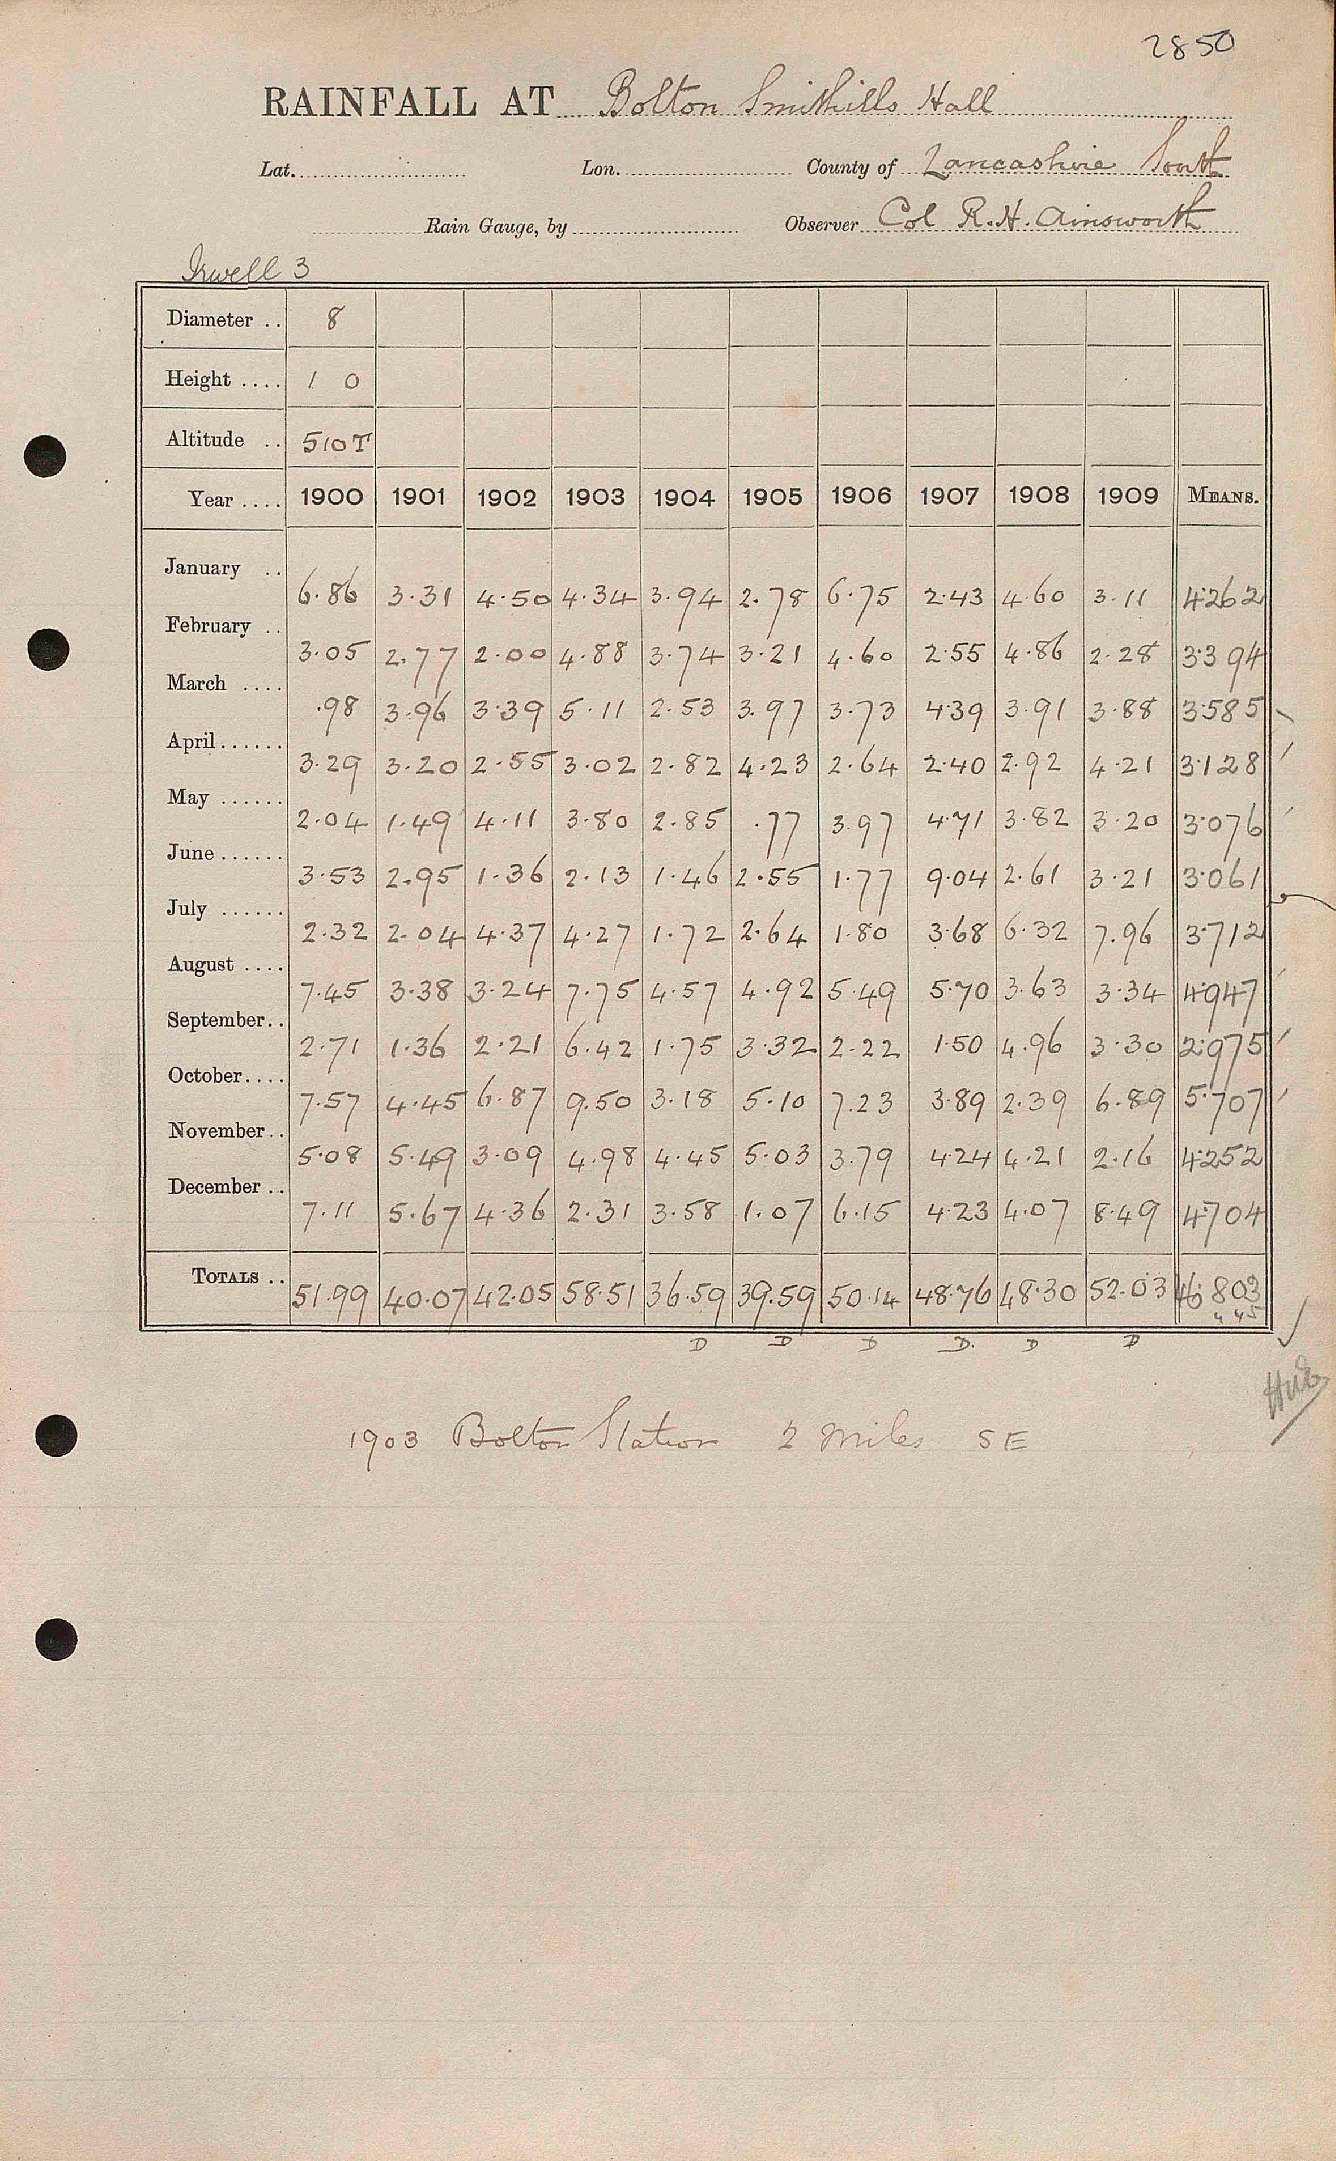 2850
RAINFALL AT Bolton Smithills Hall
Lat. Lon. County of Lancashire South
Rain Gauge, by Observer Col R. H. Ainsworth
Irwell 3
Diameter .. 8
Height .... 1 0
Altitude .. 510T
Year .... 1900 1901 1902 1903 1904 1905 1906 1907 1908 1909 MEANS.
January .. 6.86 3.31 4.50 4.34 3.94 2.78 6.75 2.43 4.60 3.11 4.262
February .. 3.05 2.77 2.00 4.88 3.74 3.21 4.60 2.55 4.86 2.28 3.394
March .... .98 3.96 3.39 5.11 2.53 3.97 3.73 4.39 3.91 3.88 3.585
April...... 3.29 3.20 2.55 3.02 2.82 4.23 2.64 2.40 2.92 4.21 3.128
May ...... 2.04 1.49 4.11 3.80 2.85 .77 3.97 4.71 3.82 3.20 3.076
June...... 3.53 2.95 1.36 2.13 1.46 2.55 1.77 9.04 2.61 3.21 3.061
July ...... 2.32 2.04 4.37 4.27 1.72 2.64 1.80 3.68 6.32 7.96 3.712
August .... 7.45 3.38 3.24 7.75 4.57 4.92 5.49 5.70 3.63 3.34 4.947
September.. 2.71 1.36 2.21 6.42 1.75 3.32 2.22 1.50 4.96 3.30 2.975
October.... 7.57 4.45 6.87 9.50 3.18 5.10 7.23 3.89 2.39 6.89 5.707
November.. 5.08 5.49 3.09 4.98 4.45 5.03 3.79 4.24 4.21 2.16 4.252
December .. 7.11 5.67 4.36 2.31 3.58 1.07 6.15 4.23 4.07 8.49 4.704
TOTALS .. 51.99 40.07 42.05 58.51 36.59 39.59 50.14 48.76 48.30 52.03 46.803
D D D D. D D
1903 Bolton Station 2 miles SE